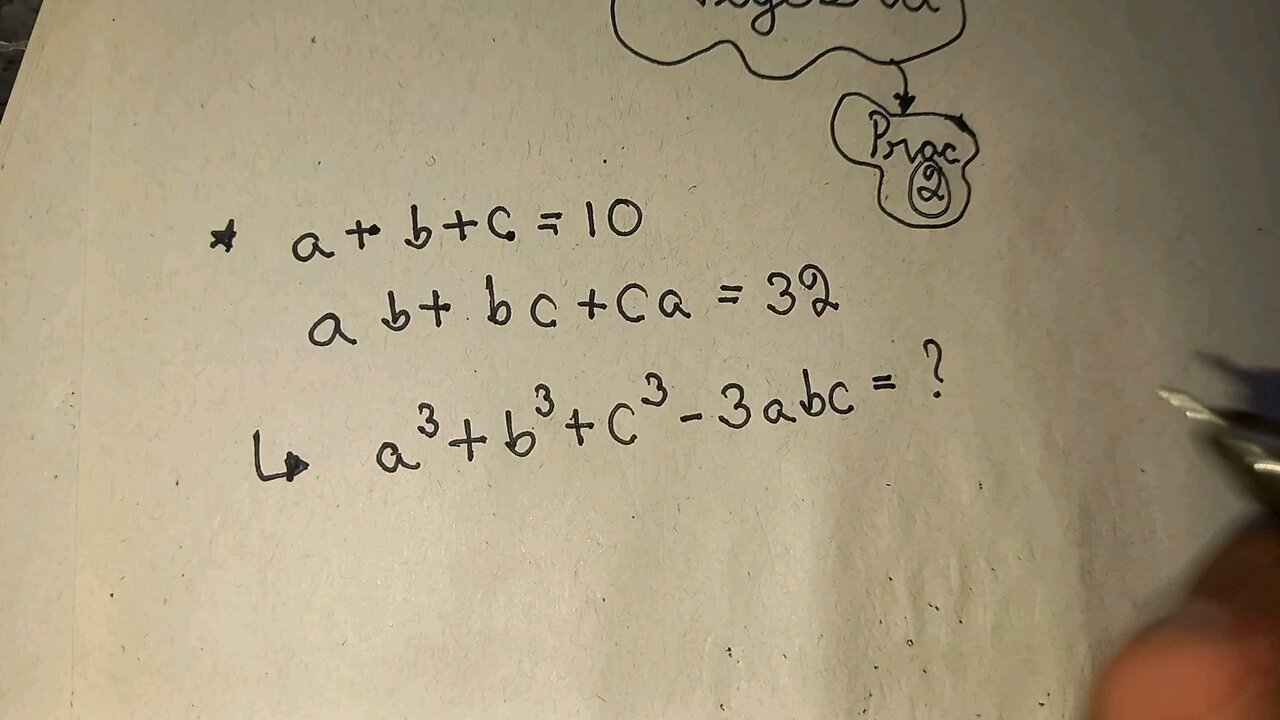 Prac
2
* a + b + c = 10
a b + b c + c a = 32
↳ a³ + b³ + c³ - 3abc = ?